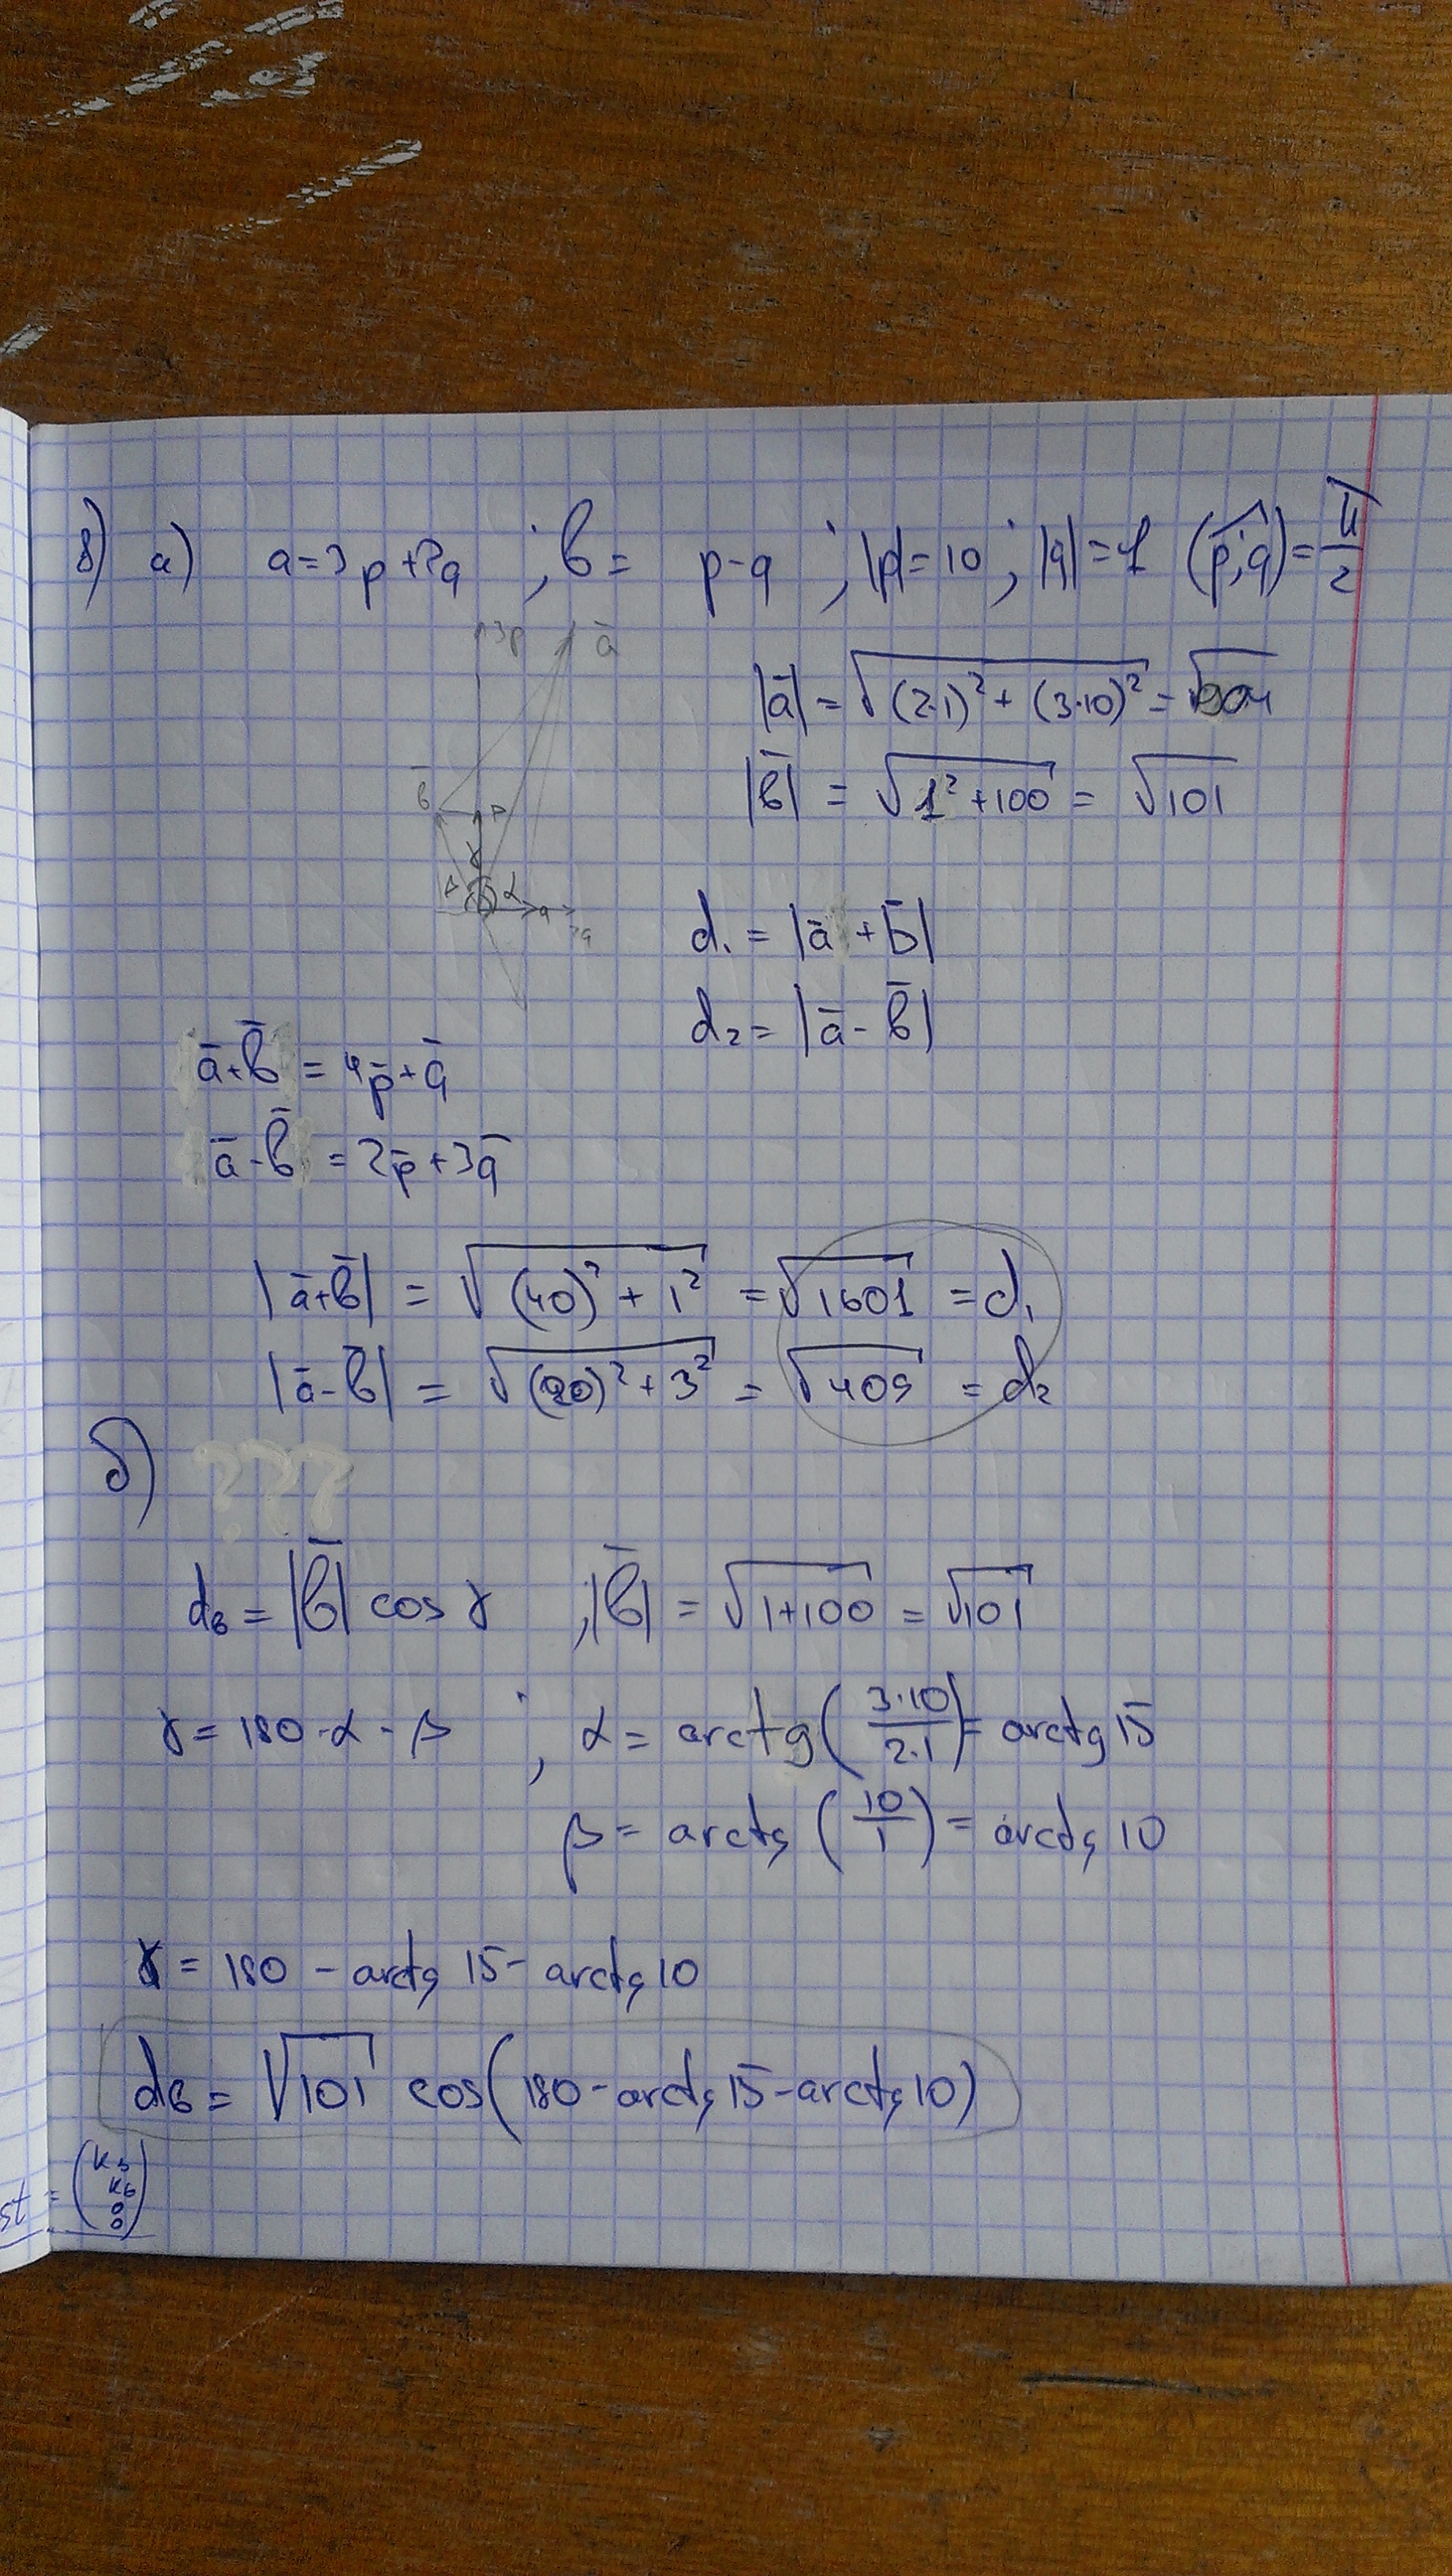 8) а) a=3p+2q ; b= p-q ; |p|=10 ; |q|=1 (p̂;q)=π/2
3p ā
|ā| = √((2·1)² + (3·10)²) = √904
|b̄| = √(1²+100) = √101
b̄ p
γ
β α q
2q
d₁ = |ā + b̄|
d₂ = |ā - b̄|
ā+b̄ = 4p̄+q̄
ā-b̄ = 2p̄+3q̄
|ā+b̄| = √((40)² + 1²) = √1601 = d₁
|ā-b̄| = √((20)²+3²) = √409 = d₂
б) ???
dв = |b̄| cos γ ; |b̄| = √(1+100) = √101
γ = 180-α-β ; α = arctg(3·10/2·1) = arctg 15
β = arctg (10/1) = arctg 10
γ = 180 - arctg 15 - arctg 10
dв = √101 cos(180-arctg 15-arctg 10)